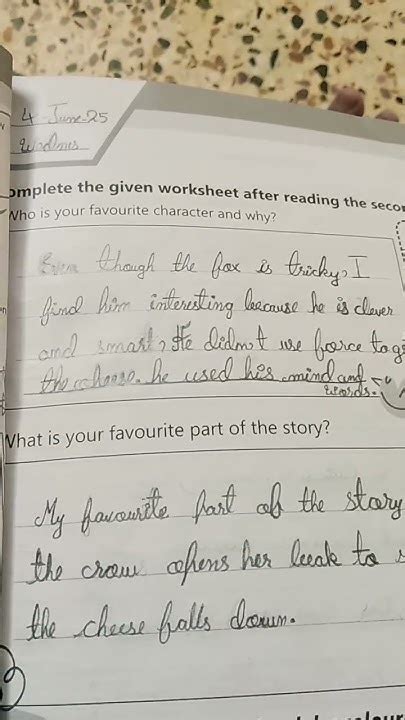 4 June-25
Wednes
omplete the given worksheet after reading the seco
Who is your favourite character and why?
Even though the fox is tricky, I
find him interesting because he is clever
and smart, He didn't use force to g
the cheese. he used his mind and
words.
What is your favourite part of the story?
My favourite part of the story
the crow opens her beak to s
the cheese falls down.